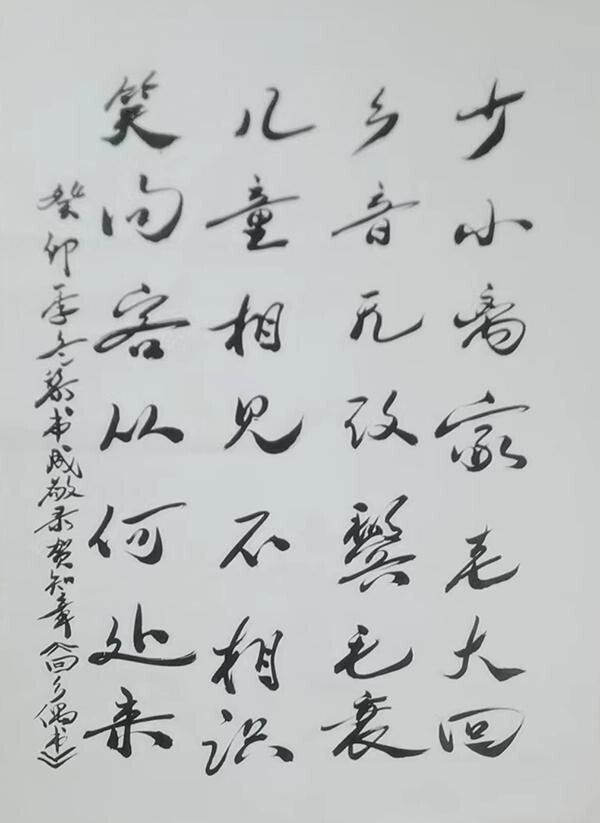 少小离家老大回
乡音无改鬓毛衰
儿童相见不相识
笑问客从何处来
癸卯季冬 书成敬录贺知章《回乡偶书》